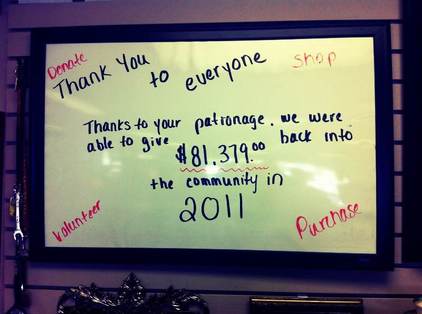 Donate
Shop
Thank You to everyone
Thanks to your patronage. we were
able to give $81,379.00 back into
the community in
2011
Volunteer
Purchase